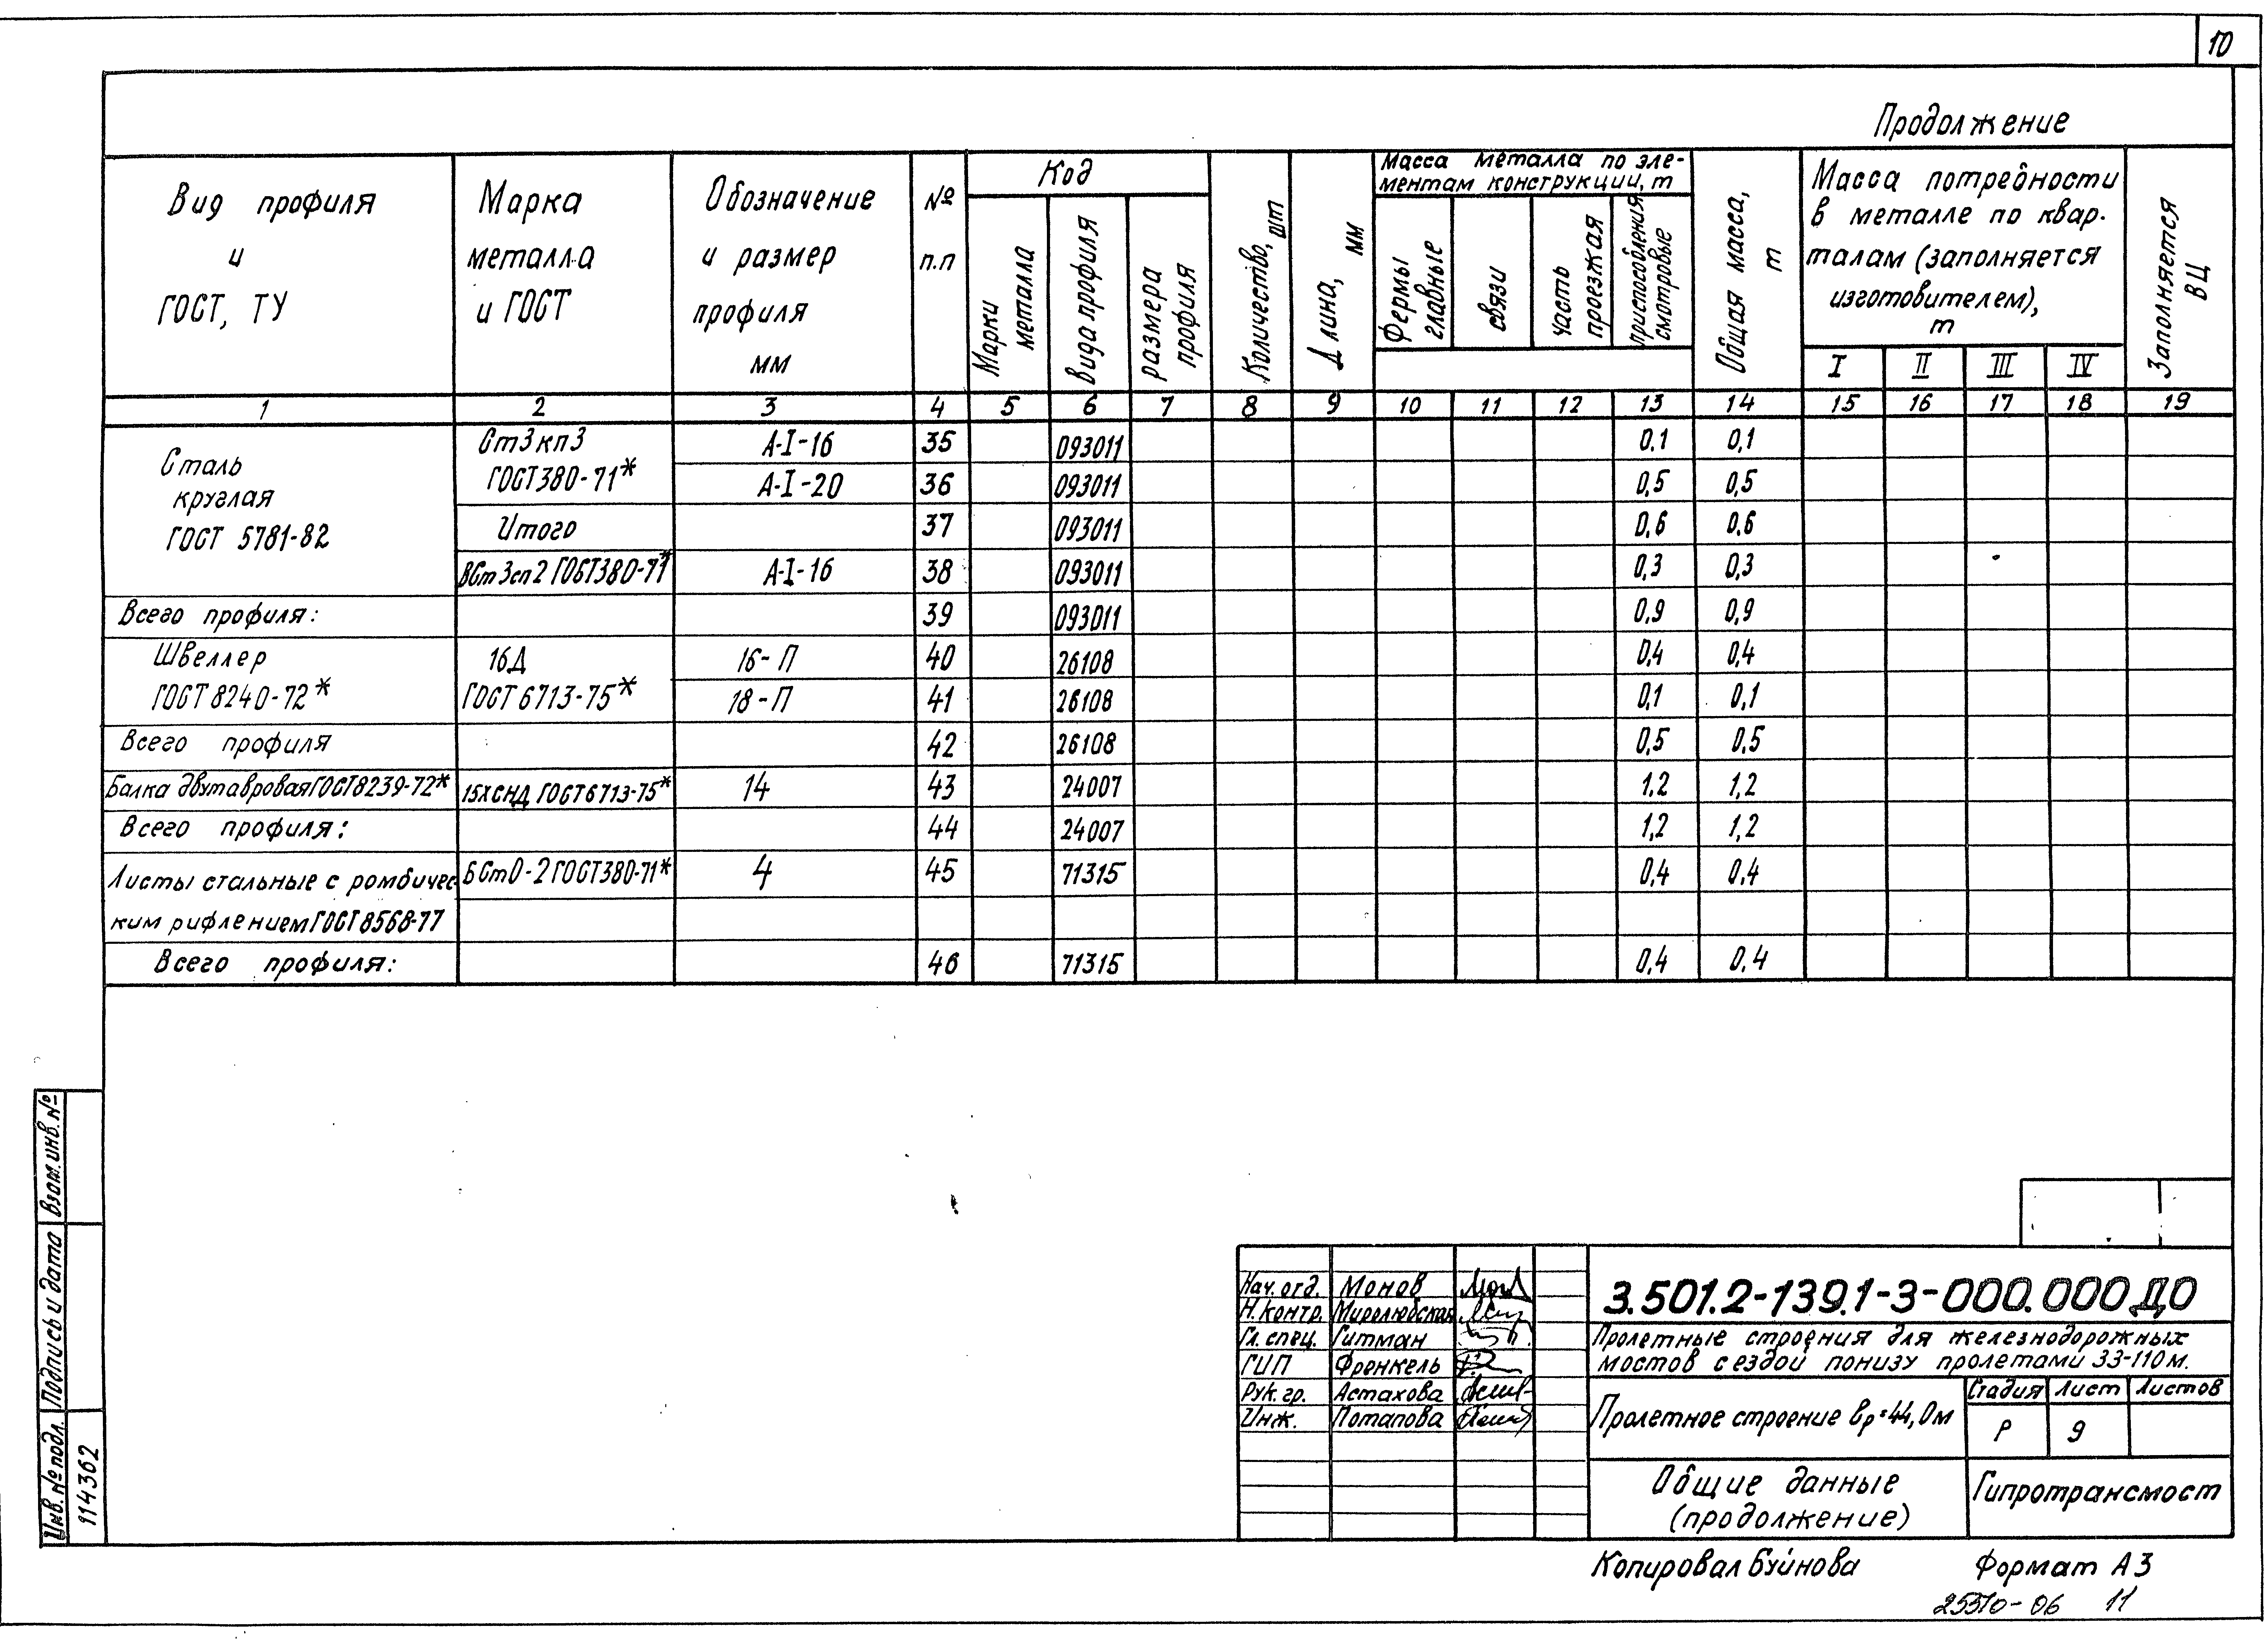 10
Продолжение
Вид профиля и ГОСТ, ТУ
Марка металла и ГОСТ
Обозначение и размер профиля мм
№ п.п
Код
Марки металла
Вида профиля
Размера профиля
Количество, шт
Длина, мм
Масса металла по элементам конструкции, т
Фермы главные
связи
часть проезжая
приспособления смотровые
Общая масса, т
Масса потребности в металле по кварталам (заполняется изготовителем), т
I II III IV
Заполняется ВЦ
1 2 3 4 5 6 7 8 9 10 11 12 13 14 15 16 17 18 19
Сталь круглая ГОСТ 5781-82
Ст3кп3 ГОСТ380-71*
А-I-16 35 093011 0,1 0,1
А-I-20 36 093011 0,5 0,5
Итого 37 093011 0,6 0,6
ВСт3сп2 ГОСТ380-71* А-I-16 38 093011 0,3 0,3
Всего профиля: 39 093011 0,9 0,9
Швеллер ГОСТ 8240-72*
16Д ГОСТ 6713-75*
16-П 40 26108 0,4 0,4
18-П 41 26108 0,1 0,1
Всего профиля 42 26108 0,5 0,5
Балка двутавровая ГОСТ8239-72* 15ХСНД ГОСТ6713-75* 14 43 24007 1,2 1,2
Всего профиля: 44 24007 1,2 1,2
Листы стальные с ромбичес БСт0-2 ГОСТ380-71* 4 45 71315 0,4 0,4
ким рифлением ГОСТ8568-77
Всего профиля: 46 71315 0,4 0,4
Взам. инв. №
Подпись и дата
Инв. № подл.
114362
Нач. отд. Монов
Н. контр. Миролюбская
Гл. спец. Гитман
ГИП Френкель
Рук. гр. Астахова
Инж. Потапова
3.501.2-139.1-3-000.000ДО
Пролетные строения для железнодорожных
мостов с ездой понизу пролетами 33-110м.
Пролетное строение ℓр=44,0м
Стадия Лист Листов
Р 9
Общие данные
(продолжение)
Гипротрансмост
Копировал Буйнова Формат А3
25570-06 11